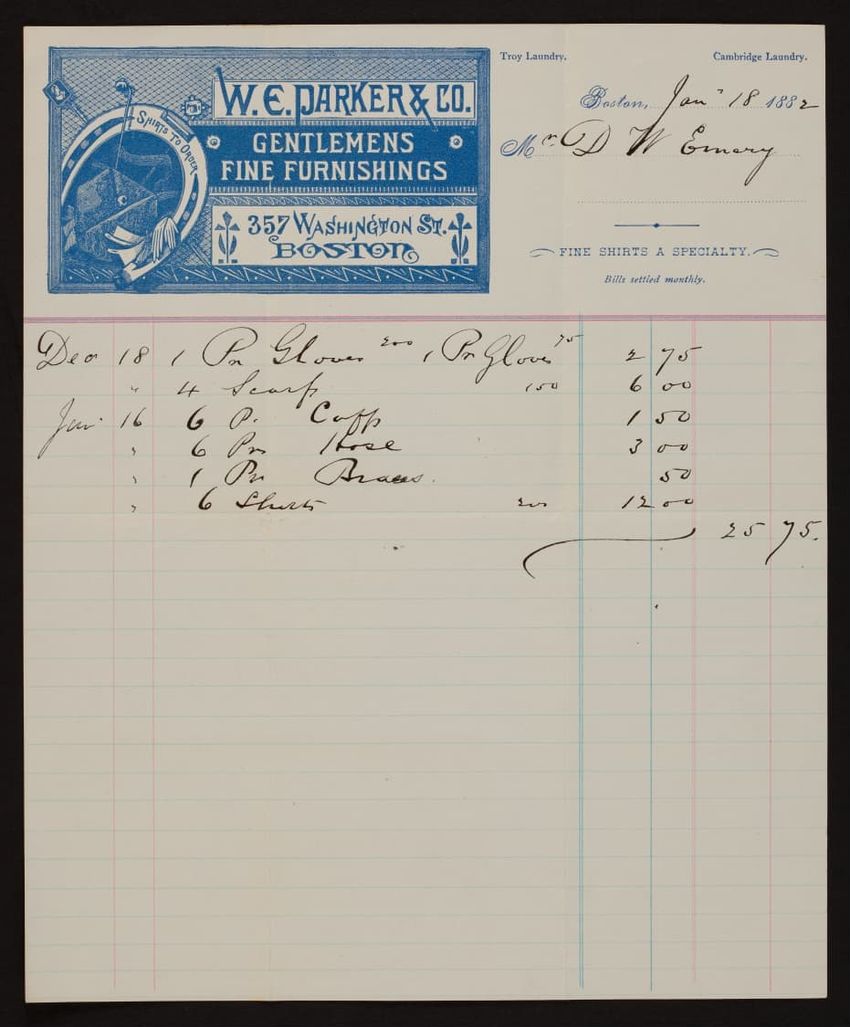 Troy Laundry. Cambridge Laundry.
W. E. PARKER & CO.
SHIRTS TO ORDER
GENTLEMENS
FINE FURNISHINGS
357 WASHINGTON ST.
BOSTON
Boston, Jan 18 1882
Mr. D W Emery
FINE SHIRTS A SPECIALTY.
Bills settled monthly.
Dec 18 1 Pr Gloves 200 1 Pr Gloves 75 2 75
" 4 Scarfs 150 6 00
Jan 16 6 P. Cuffs 1 50
" 6 Prs Hose 3 00
" 1 Pr Braces. 50
" 6 Shirts 200 12 00
25 75.